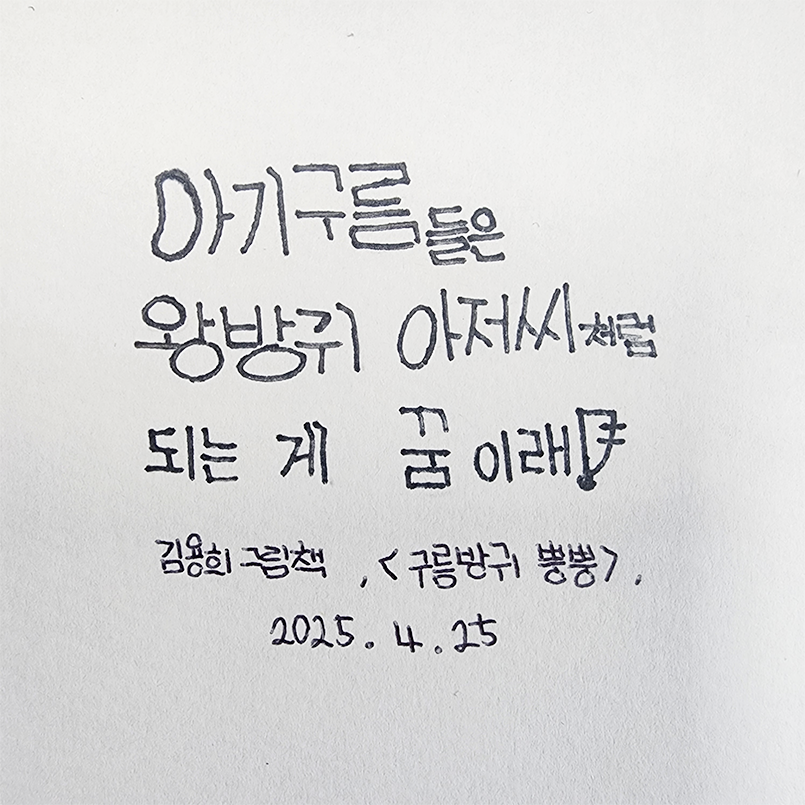 아기구름들은
왕방귀 아저씨처럼
되는 게 꿈이래!
김용희 그림책, <구름방귀 뿡뿡>,
2025. 4. 25